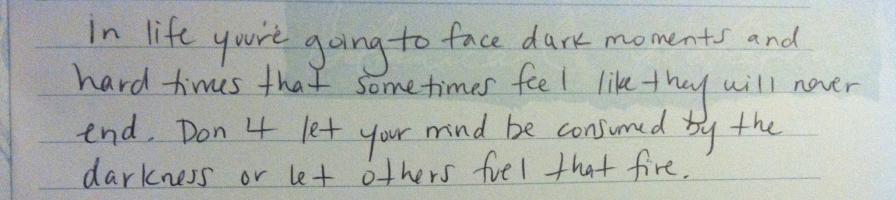 in life you're going to face dark moments and
hard times that sometimes feel like they will never
end. Don't let your mind be consumed by the
darkness or let others fuel that fire.